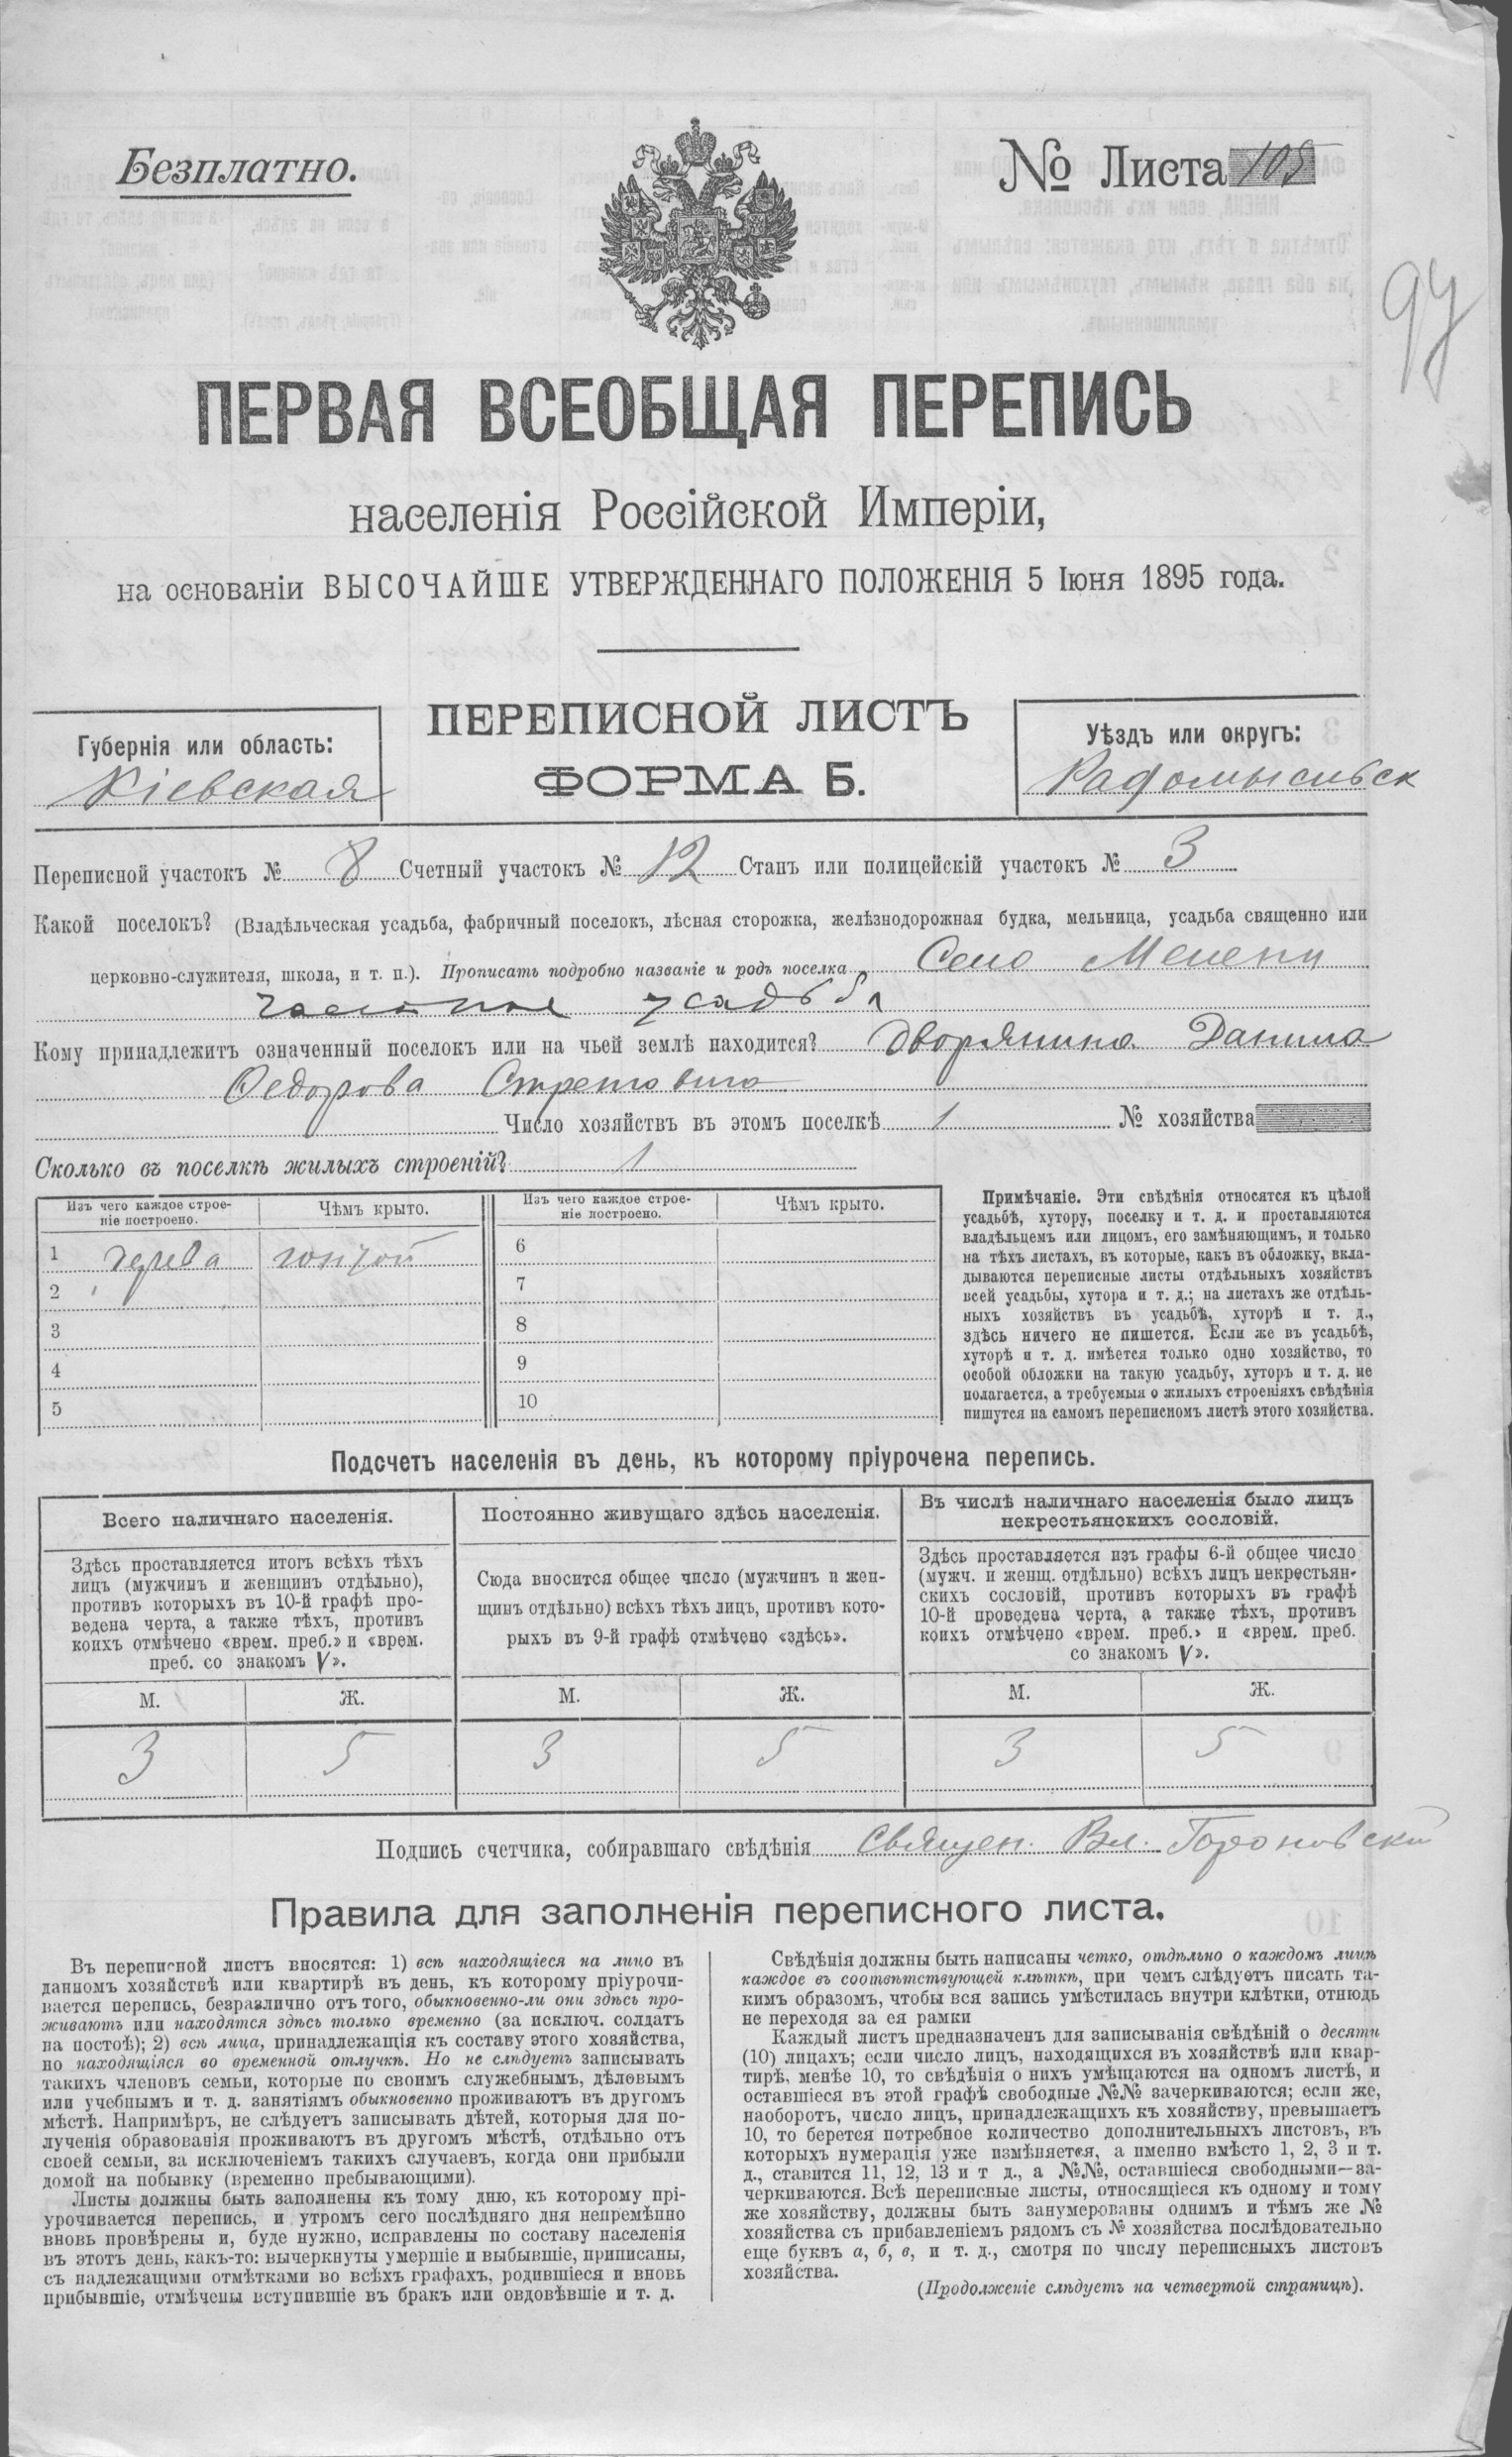 Безплатно.
№ Листа 105
97
ПЕРВАЯ ВСЕОБЩАЯ ПЕРЕПИСЬ
населенія Россійской Имперіи,
на основаніи ВЫСОЧАЙШЕ УТВЕРЖДЕННАГО ПОЛОЖЕНІЯ 5 Іюня 1895 года.
ПЕРЕПИСНОЙ ЛИСТЪ
ФОРМА Б.
Губернія или область:
Кіевская
Уѣздъ или округъ:
Радомысльск
Переписной участокъ № 8 Счетный участокъ № 12 Станъ или полицейскій участокъ № 3
Какой поселокъ? (Владѣльческая усадьба, фабричный поселокъ, лѣсная сторожка, желѣзнодорожная будка, мельница, усадьба священно или
церковно-служителя, школа, и т. п.). Прописать подробно названіе и родъ поселка Село Мелени
усадьба
Кому принадлежитъ означенный поселокъ или на чьей землѣ находится? Дворянина Данила
Ѳедорова
Число хозяйствъ въ этомъ поселкѣ 1 № хозяйства
Сколько въ поселкѣ жилыхъ строеній? 1
Изъ чего каждое строе-
ніе построено.
Чѣмъ крыто.
Изъ чего каждое строе-
ніе построено.
Чѣмъ крыто.
1 дерева гонтой
2
3
4
5
6
7
8
9
10
Примѣчаніе. Эти свѣдѣнія относятся къ цѣлой
усадьбѣ, хутору, поселку и т. д. и проставляются
владѣльцемъ или лицомъ, его замѣняющимъ, и только
на тѣхъ листахъ, въ которые, какъ въ обложку, вкла-
дываются переписные листы отдѣльныхъ хозяйствъ
всей усадьбы, хутора и т. д.; на листахъ же отдѣль-
ныхъ хозяйствъ въ усадьбѣ, хуторѣ и т. д.,
здѣсь ничего не пишется. Если же въ усадьбѣ,
хуторѣ и т. д. имѣется только одно хозяйство, то
особой обложки на такую усадьбу, хуторъ и т. д. не
полагается, а требуемыя о жилыхъ строеніяхъ свѣдѣнія
пишутся на самомъ переписномъ листѣ этого хозяйства.
Подсчетъ населенія въ день, къ которому пріурочена перепись.
Всего наличнаго населенія.
Здѣсь проставляется итогъ всѣхъ тѣхъ
лицъ (мужчинъ и женщинъ отдѣльно),
противъ которыхъ въ 10-й графѣ про-
ведена черта, а также тѣхъ, противъ
коихъ отмѣчено «врем. преб.» и «врем.
преб. со знакомъ V».
М. Ж.
3 5
Постоянно живущаго здѣсь населенія.
Сюда вносится общее число (мужчинъ и жен-
щинъ отдѣльно) всѣхъ тѣхъ лицъ, противъ кото-
рыхъ въ 9-й графѣ отмѣчено «здѣсь».
М. Ж.
3 5
Въ числѣ наличнаго населенія было лицъ
некрестьянскихъ сословій.
Здѣсь проставляется изъ графы 6-й общее число
(мужч. и женщ. отдѣльно) всѣхъ лицъ некрестьян-
скихъ сословій, противъ которыхъ въ графѣ
10-й проведена черта, а также тѣхъ, противъ
коихъ отмѣчено «врем. преб.» и «врем. преб.
со знакомъ V».
М. Ж.
3 5
Подпись счетчика, собиравшаго свѣдѣнія Священ. Вл.
Правила для заполненія переписного листа.
Въ переписной листъ вносятся: 1) всѣ находящіеся на лицо въ
данномъ хозяйствѣ или квартирѣ въ день, къ которому пріурочи-
вается перепись, безразлично отъ того, обыкновенно-ли они здѣсь про-
живаютъ или находятся здѣсь только временно (за исключ. солдатъ
на постоѣ); 2) всѣ лица, принадлежащія къ составу этого хозяйства,
но находящіяся во временной отлучкѣ. Но не слѣдуетъ записывать
такихъ членовъ семьи, которые по своимъ служебнымъ, дѣловымъ
или учебнымъ и т. д. занятіямъ обыкновенно проживаютъ въ другомъ
мѣстѣ. Напримѣръ, не слѣдуетъ записывать дѣтей, которыя для по-
лученія образованія проживаютъ въ другомъ мѣстѣ, отдѣльно отъ
своей семьи, за исключеніемъ такихъ случаевъ, когда они прибыли
домой на побывку (временно пребывающими).
Листы должны быть заполнены къ тому дню, къ которому прі-
урочивается перепись, и утромъ сего послѣдняго дня непремѣнно
вновь провѣрены и, буде нужно, исправлены по составу населенія
въ этотъ день, какъ-то: вычеркнуты умершіе и выбывшіе, приписаны,
съ надлежащими отмѣтками во всѣхъ графахъ, родившіеся и вновь
прибывшіе, отмѣчены вступившіе въ бракъ или овдовѣвшіе и т. д.
Свѣдѣнія должны быть написаны четко, отдѣльно о каждомъ лицѣ
каждое въ соотвѣтствующей клѣткѣ, при чемъ слѣдуетъ писать та-
кимъ образомъ, чтобы вся запись умѣстилась внутри клѣтки, отнюдь
не переходя за ея рамки
Каждый листъ предназначенъ для записыванія свѣдѣній о десяти
(10) лицахъ; если число лицъ, находящихся въ хозяйствѣ или квар-
тирѣ, менѣе 10, то свѣдѣнія о нихъ умѣщаются на одномъ листѣ, и
оставшіеся въ этой графѣ свободные №№ зачеркиваются; если же,
наоборотъ, число лицъ, принадлежащихъ къ хозяйству, превышаетъ
10, то берется потребное количество дополнительныхъ листовъ, въ
которыхъ нумерація уже измѣняется, а именно вмѣсто 1, 2, 3 и т.
д., ставится 11, 12, 13 и т д., а №№, оставшіеся свободными—за-
черкиваются. Всѣ переписные листы, относящіеся къ одному и тому
же хозяйству, должны быть занумерованы однимъ и тѣмъ же №
хозяйства съ прибавленіемъ рядомъ съ № хозяйства послѣдовательно
еще буквъ а, б, в, и т. д., смотря по числу переписныхъ листовъ
хозяйства.
(Продолженіе слѣдуетъ на четвертой страницѣ).